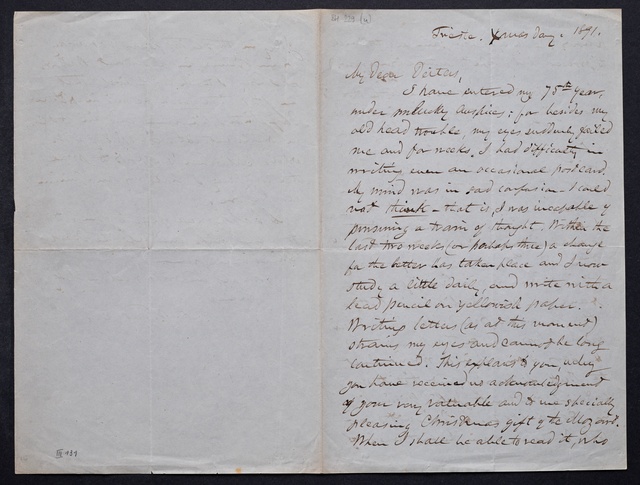 Trieste. Xmas day. 1891.
My Dear
I have entered my 75th year,
under unlucky auspices; for besides my
old head trouble, my eyes suddenly failed
me and for weeks, I had difficulty in
writing even an occasional postcard.
My mind was in sad confusion - I could
not think - that is, I was incapable of
pursuing a train of thought. Within the
last two weeks (or perhaps three) a change
for the better has taken place and I now
study a little daily, and write with a
lead pencil on yellowish paper.
Writing letters (as at this moment)
strains my eyes and cannot be long
continued. This explains to you, why
you have received no acknowledgment
of your very valuable and to me specially
pleasing Christmas gift of the Mozart.
When I shall be able to read it, who